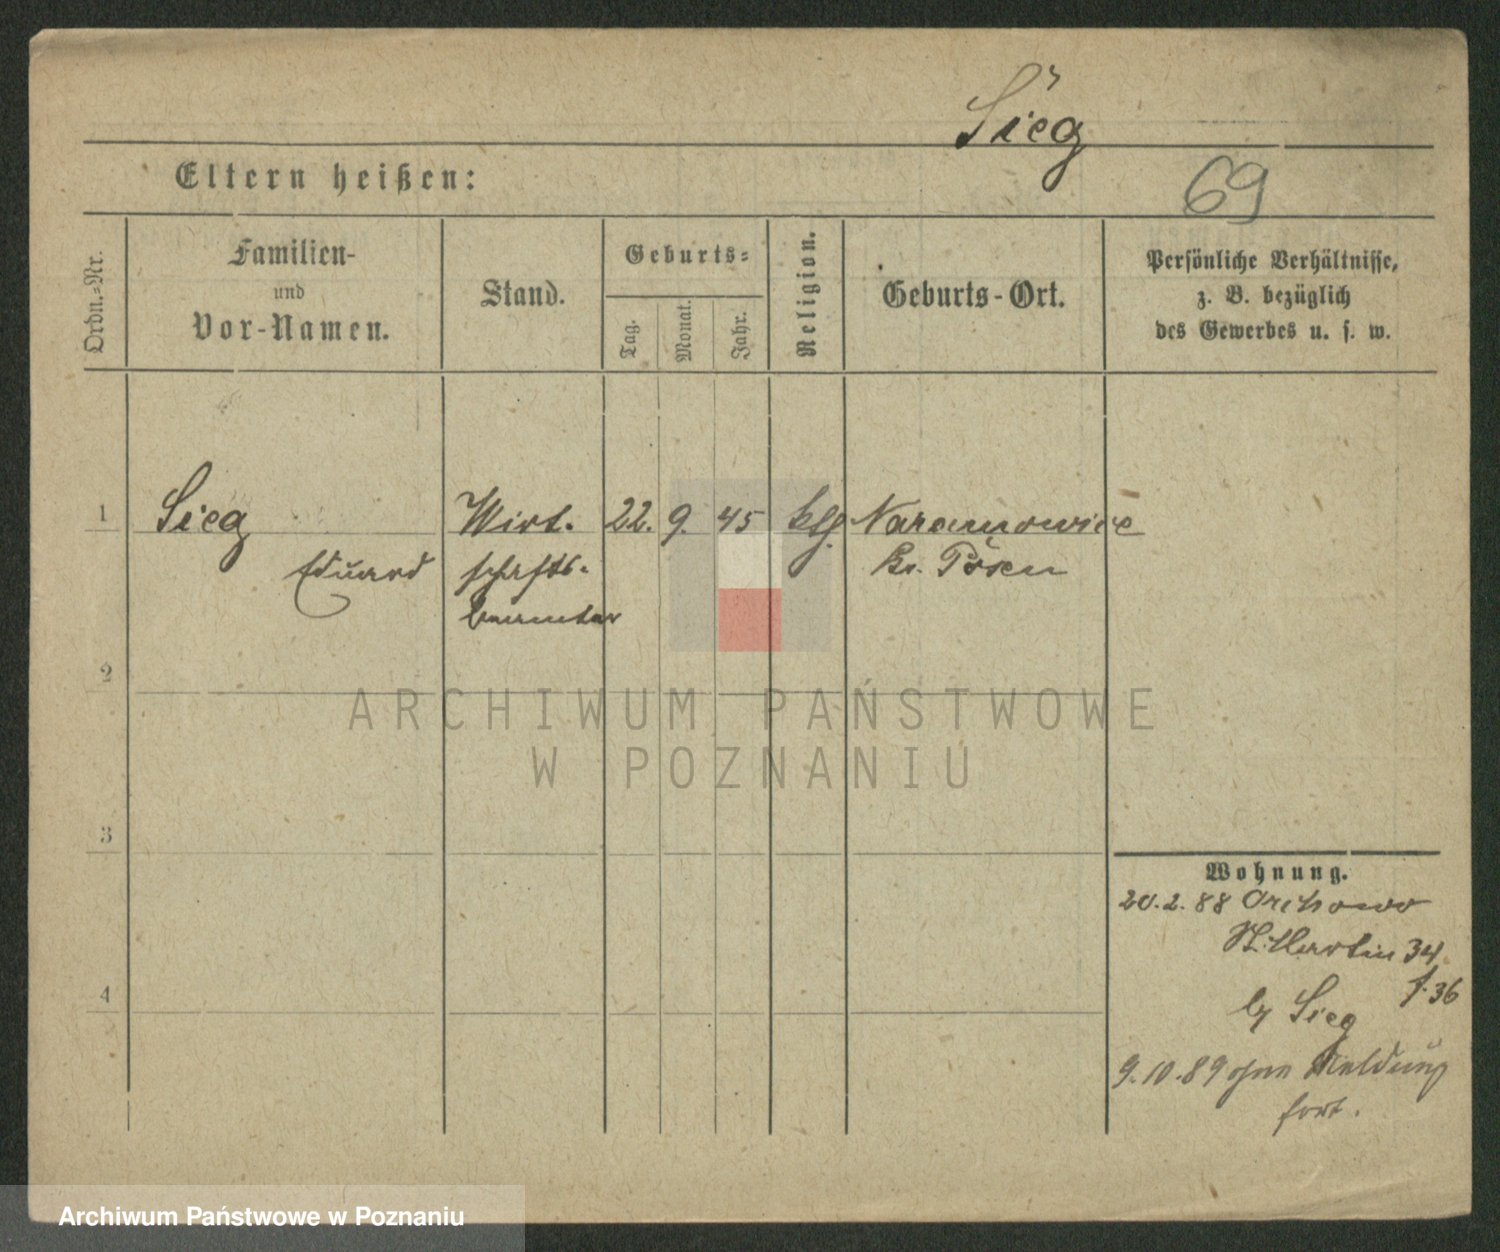 Sieg
Eltern heißen:
69
Ordn.-Nr.
Familien-
und
Vor-Namen.
Stand.
Geburts-
Tag.
Monat.
Jahr.
Religion.
Geburts-Ort.
Persönliche Verhältnisse,
z. B. bezüglich
des Gewerbes u. s. w.
1 Sieg Wirt- 22. 9. 45 klg Naramowice
Eduard schafts- Kr. Posen
beamter
2
ARCHIWUM PAŃSTWOWE
W POZNANIU
3
Wohnung.
20.2.88
St. Martin 34
4
f. 36
by Sieg
9.10.89 ohne Meldung
fort.
Archiwum Państwowe w Poznaniu